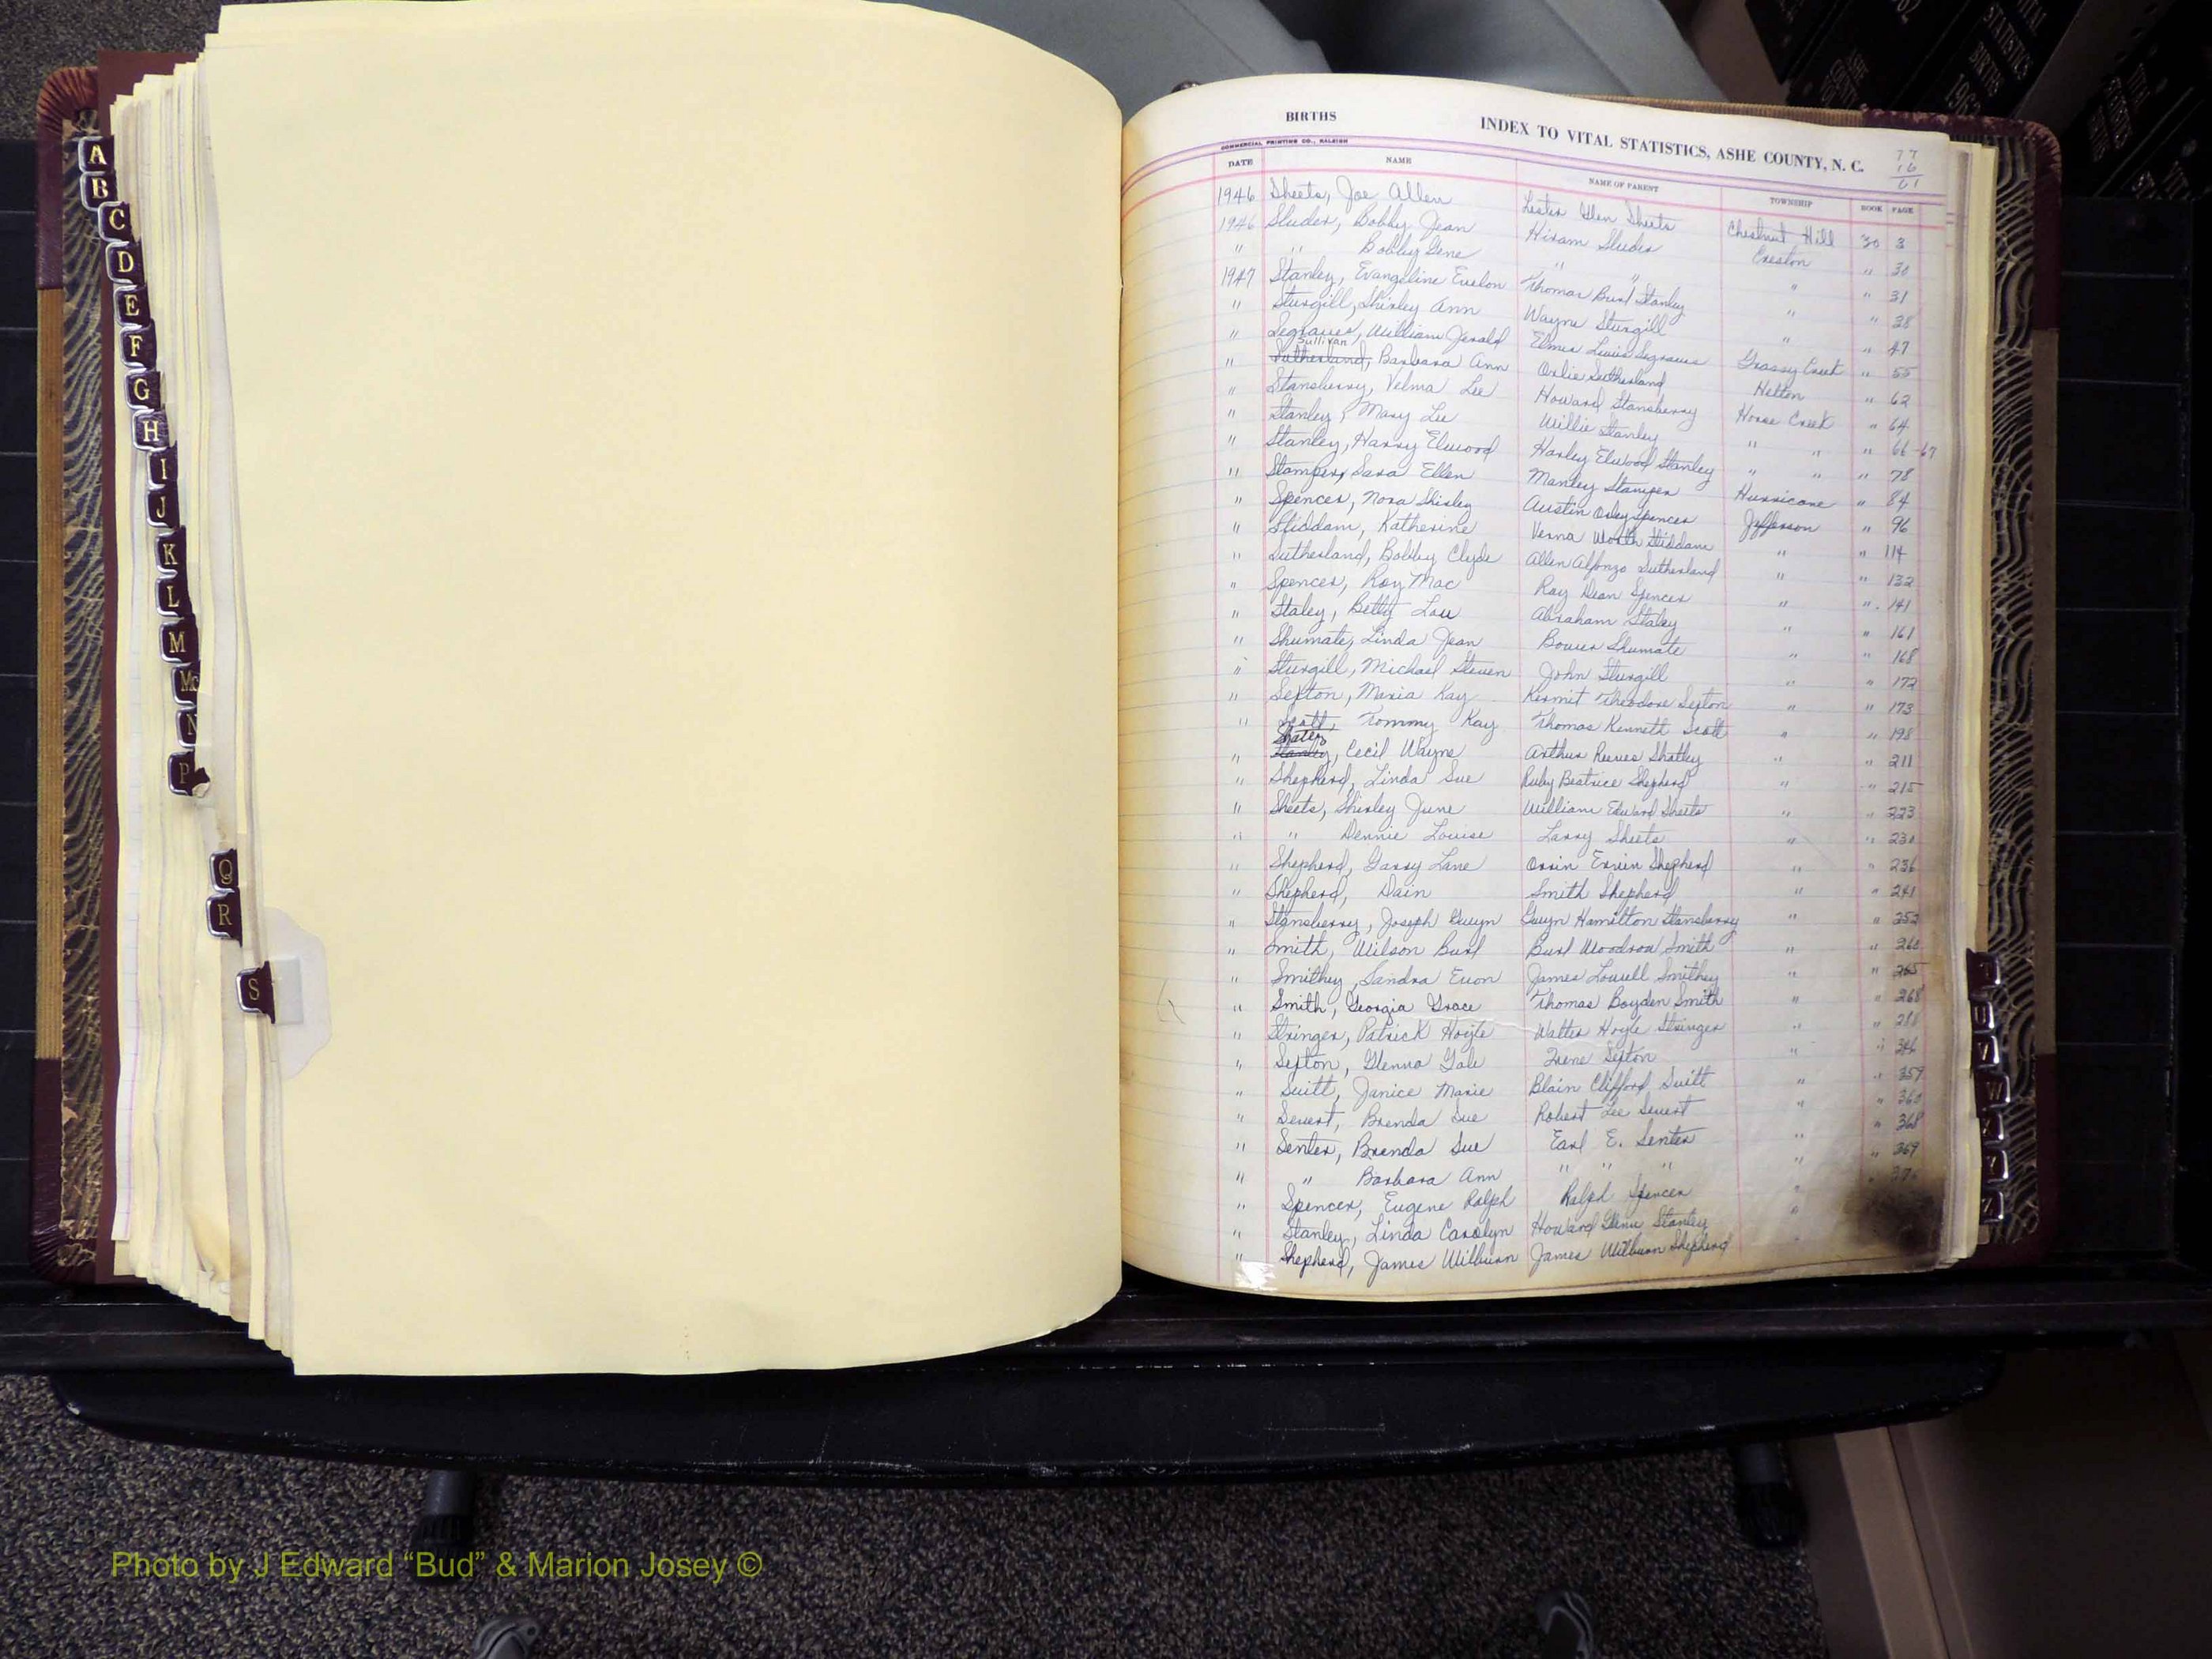 BIRTHS INDEX TO VITAL STATISTICS, ASHE COUNTY, N. C.
77
16
61
COMMERCIAL PRINTING CO., RALEIGH
DATE NAME NAME OF PARENT TOWNSHIP BOOK PAGE
1946 Sheets, Joe Allen Lester Glen Sheets Chestnut Hill 30 3
1946 Sluder, Bobby Jean Hiram Sluder Creston " 30
" " Bobby Gene " " " " 31
1947 Stanley, Evangeline Thomas Burl Stanley " " 38
" Sturgill, Shirley Ann Wayne Sturgill " " 47
" Segraves, William Jerald Elmer Segraves Grassy Creek " 55
" Sullivan
Sutherland, Barbara Ann Orlie Sutherland Helton " 62
" Stansberry, Velma Lee Howard Stansberry Horse Creek " 64
" Stanley, Mary Lee Willie Stanley " " " 66-67
" Stanley, Harry Elwood Harley Elwood Stanley " " " 78
" Stamper, Sara Ellen Manley Stamper Hurricane " 84
" Spencer, Nora Shirley Austin Spencer Jefferson " 96
" Stiddam, Katherine Verna Worth Stiddam " " 114
" Sutherland, Bobby Clyde Allen Alfonzo Sutherland " " 132
" Spencer, Roy Mac Ray Dean Spencer " " 141
" Staley, Betty Lou Abraham Staley " " 161
" Shumate, Linda Jean Bower Shumate " " 168
" Sturgill, Michael Steven John Sturgill " " 172
" Sexton, Maria Kay Kermit Theodore Sexton " " 173
" Scott, Tommy Kay Thomas Kenneth Scott " " 198
" Stanley, Cecil Wayne Arthur Reeves Shatley " " 211
" Shepherd, Linda Sue Ruby Beatrice Shepherd " " 215
" Sheets, Shirley June William Edward Sheets " " 223
" " Dennie Louise Larry Sheets " " 230
" Shepherd, Garry Lane Orvin Ervin Shepherd " " 236
" Shepherd, Dain Smith Shepherd " " 241
" Stansberry, Joseph Gwyn Gwyn Hamilton Stansberry " " 252
" Smith, Wilson Burl Burl Woodrow Smith " " 260
" Smithey, Sandra Evon James Lowell Smithey " " 265
" Smith, Georgia Grace Thomas Boyden Smith " " 268
" Stringer, Patrick Hoyle Walter Hoyle Stringer " " 288
" Sexton, Glenna Gale Irene Sexton " " 346
" Suitt, Janice Marie Blain Clifford Suitt " " 359
" Severt, Brenda Sue Robert Lee Severt " " 360
" Senter, Brenda Sue Earl E. Senter " " 368
" " Barbara Ann " " " " " 369
" Spencer, Eugene Ralph Ralph Spencer "
" Stanley, Linda Carolyn Howard Glenn Stanley "
" Shepherd, James Wilburn James Wilburn Shepherd
A
B
C
D
E
F
G
H
I
J
K
L
M
Mc
N
P
Q
R
S
T
U
V
W
Y
Z
VITAL STATISTICS BIRTH
Photo by J Edward “Bud” & Marion Josey ©